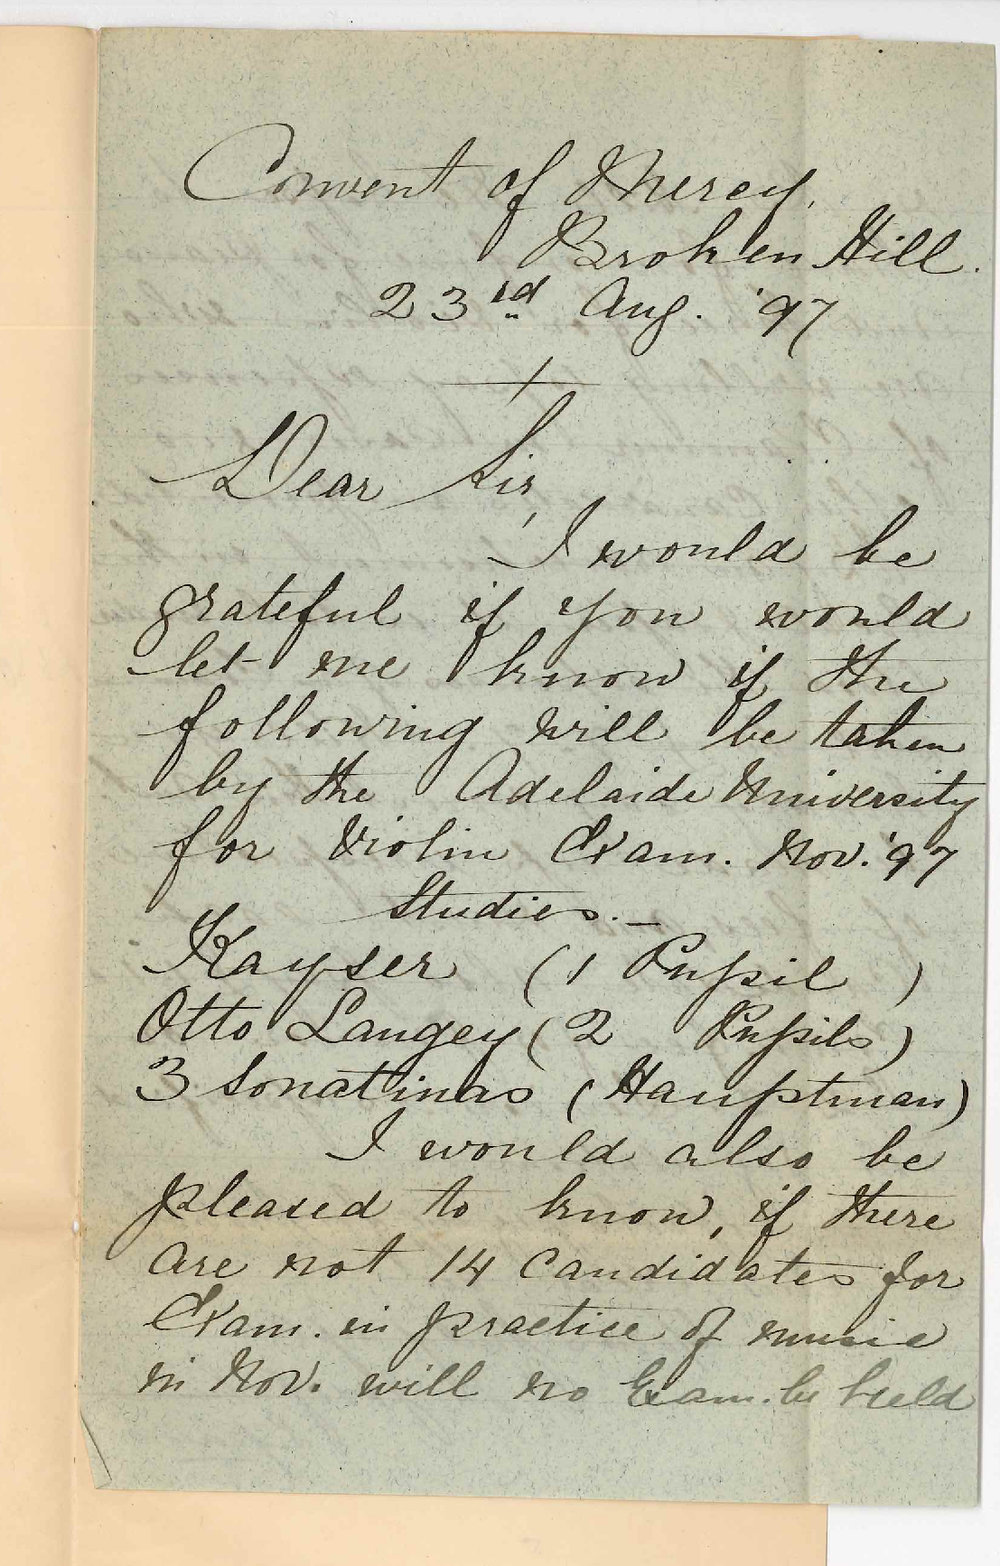 Convent of Mercy,
Broken Hill.
23rd Aug. '97
Dear Sir,
I would be
grateful if you would
let me know if the
following will be taken
by the Adelaide University
for Violin Exam. Nov. '97
Studies. —
Kayser (1 Pupil)
Otto Langey (2 Pupils)
3 Sonatinas (Hauptman)
I would also be
pleased to know, if there
are not 14 candidates for
Exam. in practice of music
in Nov. will no Exam. be held